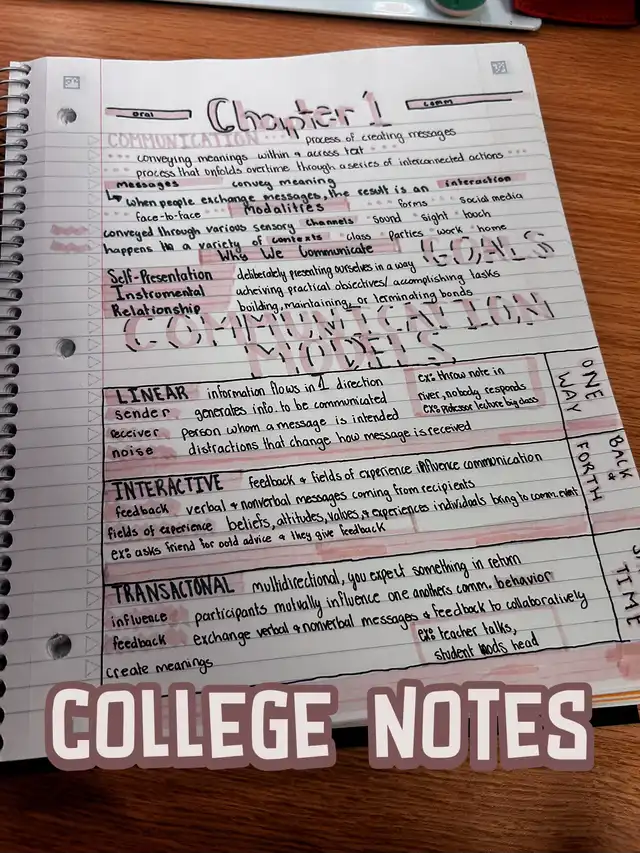 oral Chapter 1 comm
COMMUNICATION process of creating messages
conveying meanings within & across text
process that unfolds overtime through a series of interconnected actions
messages convey meaning
↳ When people exchange messages, the result is an interaction
face-to-face Modalities forms social media
conveyed through various sensory channels sound sight touch
happens in a variety of contexts class parties work home
Why We Communicate GOALS
Self-Presentation deliberately presenting ourselves in a way
Instrumental acheiving practical objectives/accomplishing tasks
Relationship building, maintaining, or terminating bonds
COMMUNICATION
MODELS
LINEAR information flows in 1 direction
sender generates info. to be communicated
receiver person whom a message is intended
noise distractions that change how message is received
ex: throw note in
river, nobody responds
ex: professor lecture big class
ONE
WAY
INTERACTIVE feedback & fields of experience influence communication
feedback verbal & nonverbal messages coming from recipients
fields of experience beliefs, attitudes, values, & experiences individuals bring to comm. event
ex: asks friend for advice & they give feedback
BACK &
FORTH
TRANSACTONAL multidirectional, you expect something in return
influence participants mutually influence one anothers comm. behavior
feedback exchange verbal & nonverbal messages & feedback to collaboratively
create meanings
ex: teacher talks,
student nods head
TIME
COLLEGE NOTES